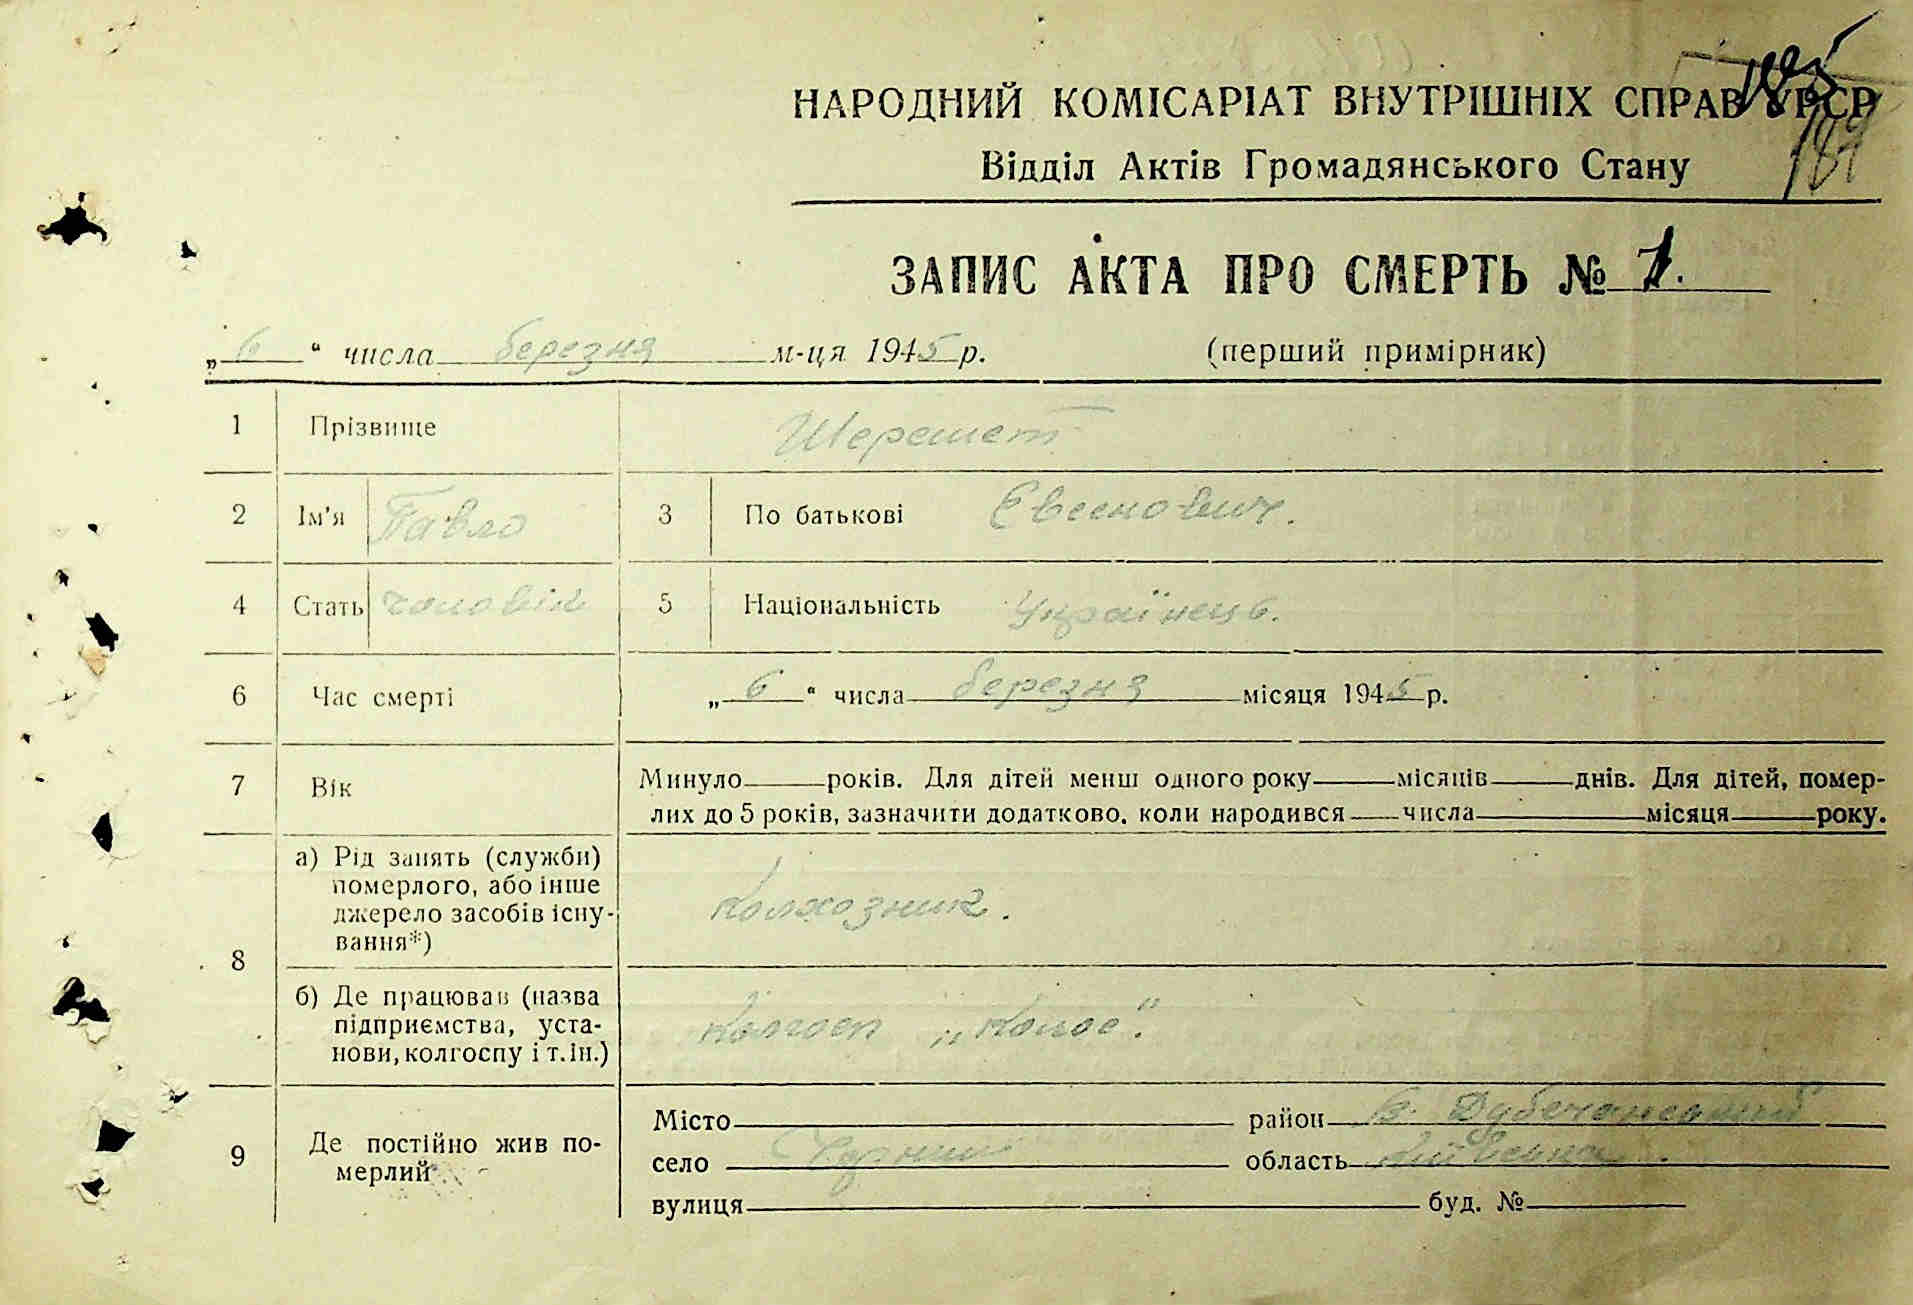 185
189
НАРОДНИЙ КОМІСАРІАТ ВНУТРІШНІХ СПРАВ УРСР
Відділ Актів Громадянського Стану
ЗАПИС АКТА ПРО СМЕРТЬ №
„ 6 “ числа березня м-ця 1945 р. (перший примірник)
1 Прізвище Шерешет
2 Ім'я Павло 3 По батькові Євсенович.
4 Стать чоловік 5 Національність Українець.
6 Час смерті „ 6 “ числа березня місяця 1945 р.
7 Вік Минуло років. Для дітей менш одного року місяців днів. Для дітей, помер-
лих до 5 років, зазначити додатково. коли народився числа місяця року.
8 а) Рід занять (служби)
померлого, або інше
джерело засобів існу-
вання*)
Колхозник.
б) Де працював (назва
підприємства, уста-
нови, колгоспу і т. ін.)
Колгосп „Колос".
9 Де постійно жив по-
мерлий
Місто район В. Дубечанський
село область Київська.
вулиця буд. №